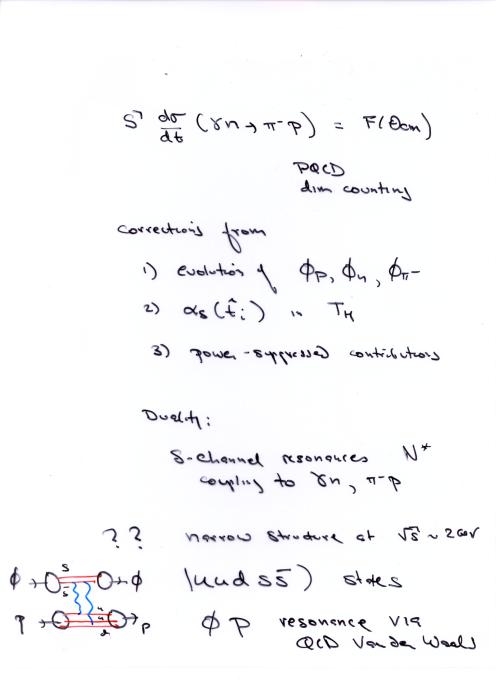 S⁷ dσ/dt (γn → π⁻p) = F(θcm)
PQCD
dim counting
Corrections from
1) evolution of ϕp, ϕn, ϕπ-
2) αs(t̂i) in TH
3) power-suppressed contributions
Duality:
S-channel resonances N*
coupling to γn, π⁻p
?? narrow structure at √s ~ 2 GeV
|uud ss̄⟩ states
ϕ p resonance via
QCD Van der Waals
ϕ → s s̄ → ϕ
p → u u d → p